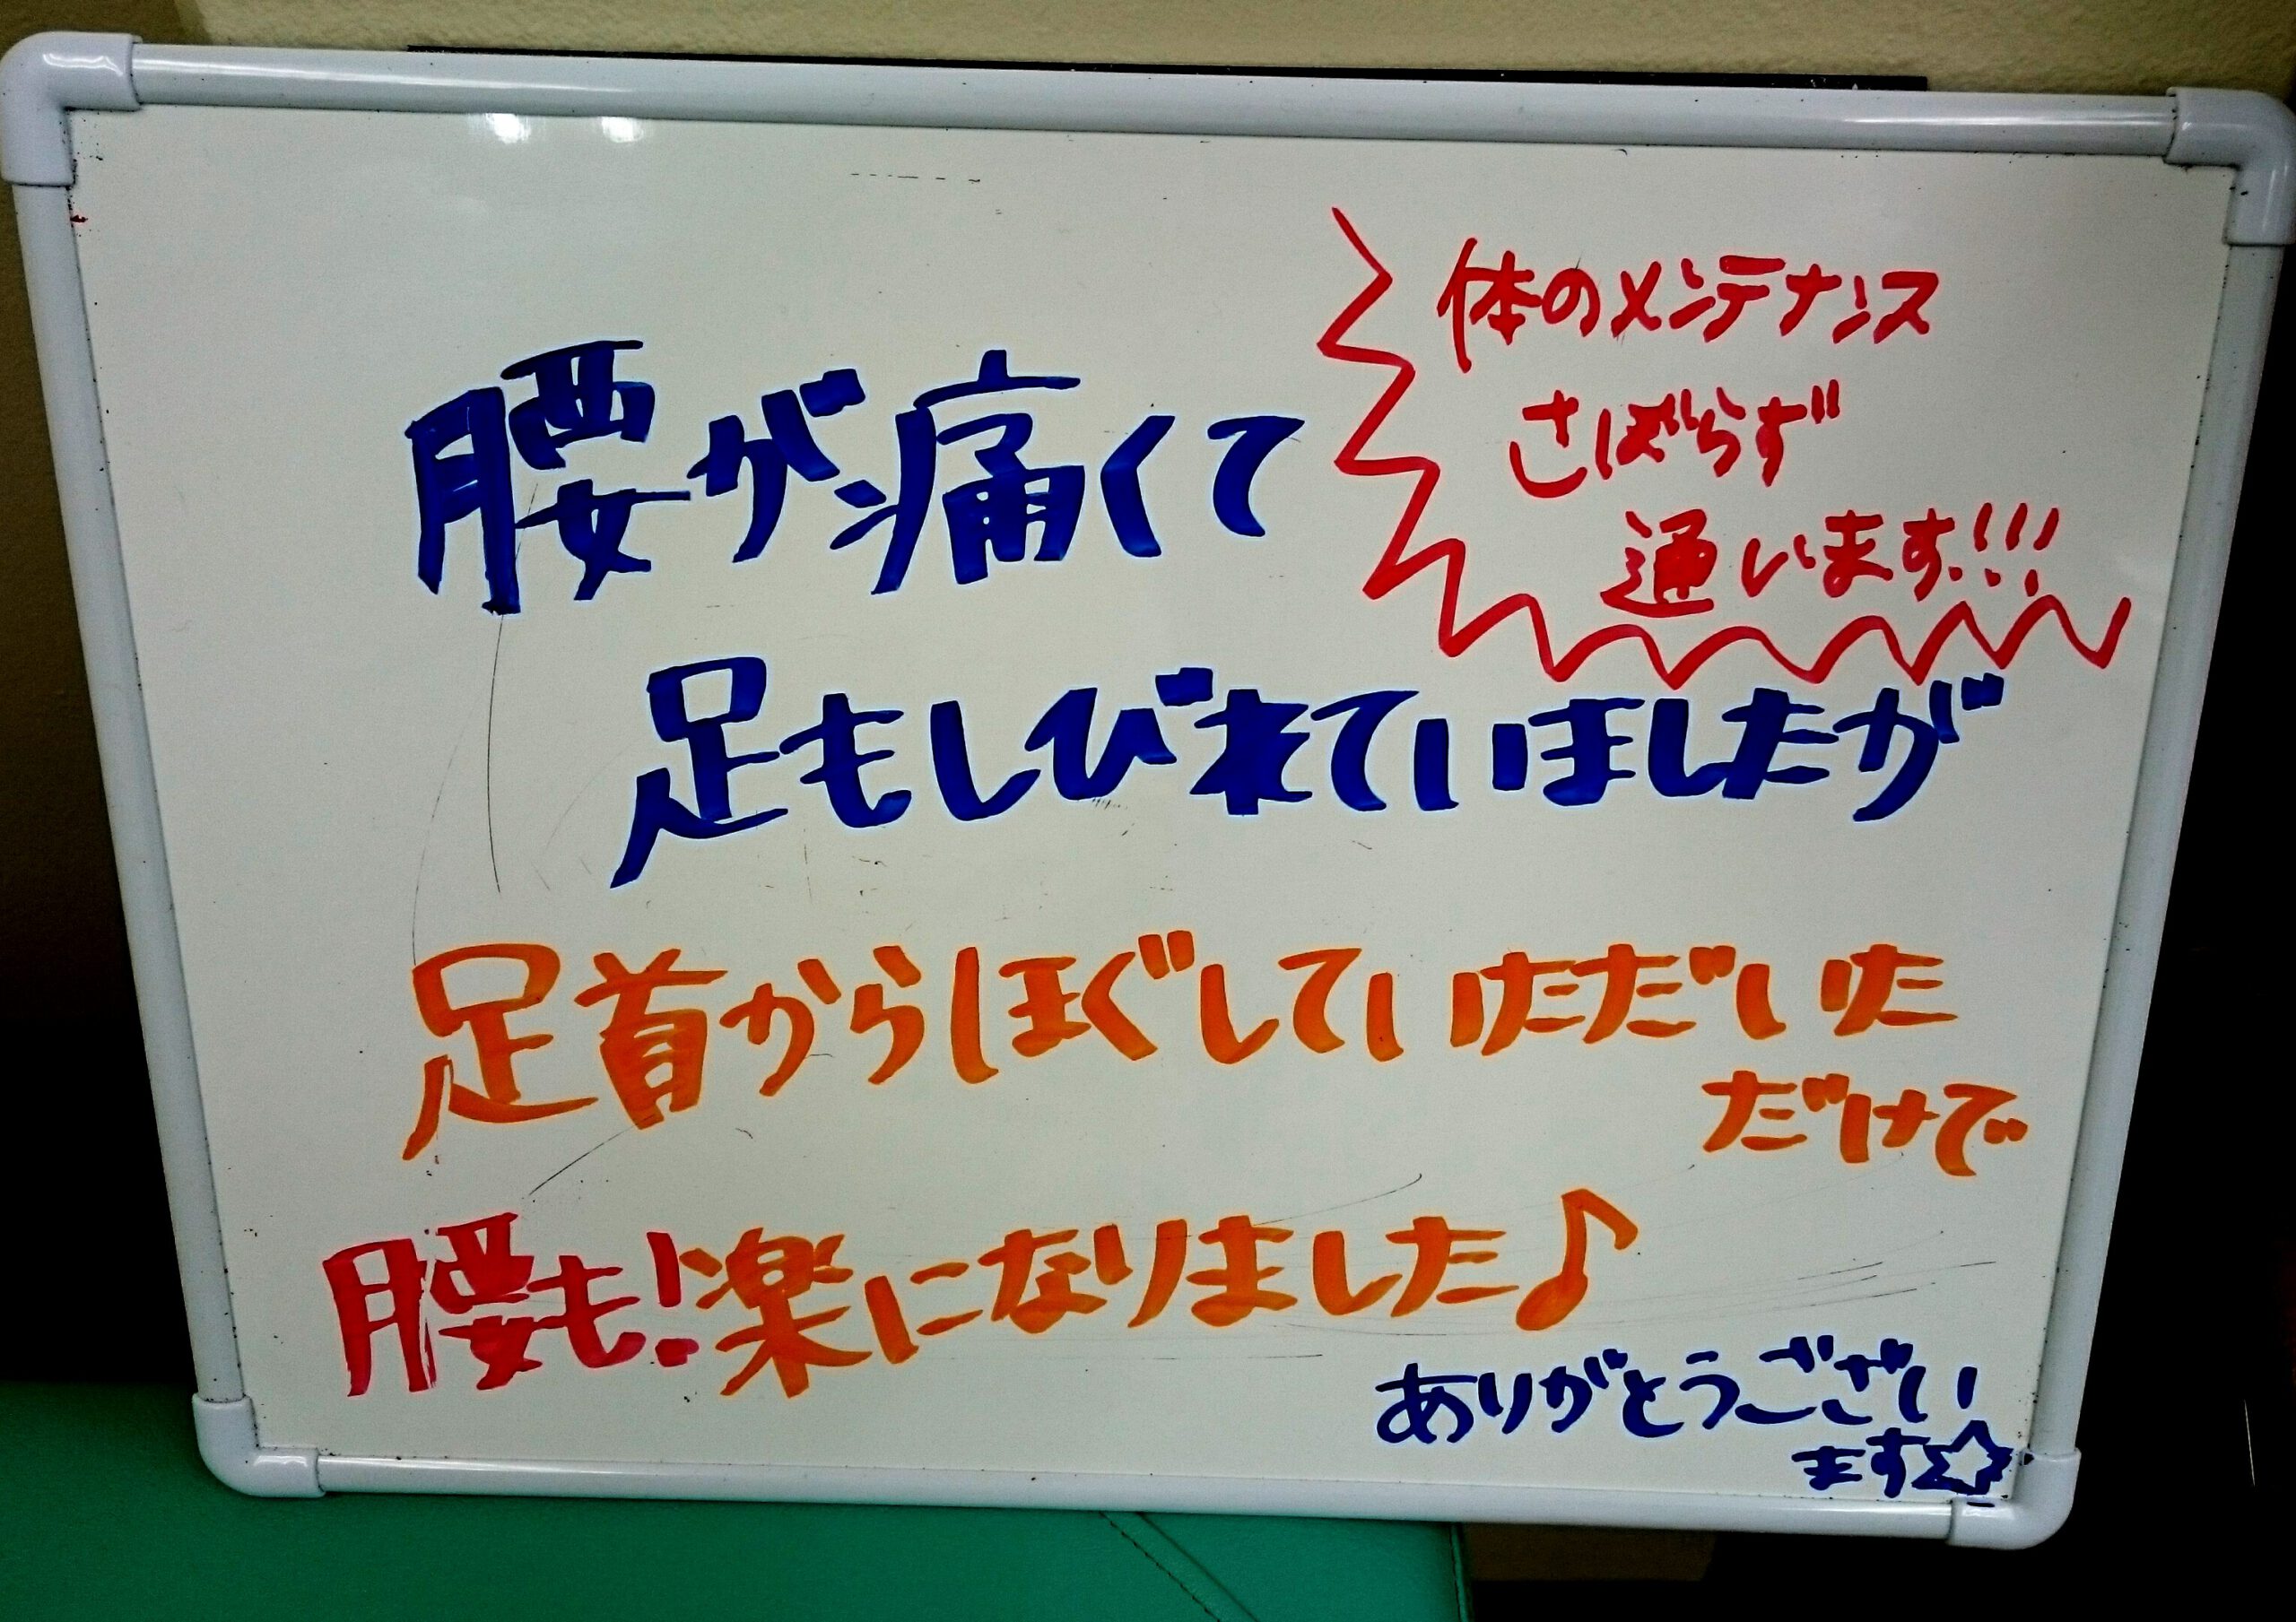 体のメンテナンス
さばらず
通います!!!
腰が痛くて
足もしびれていましたが
足首からほぐしていただいた
だけで
腰も!楽になりました♪
ありがとうござい
ます☆